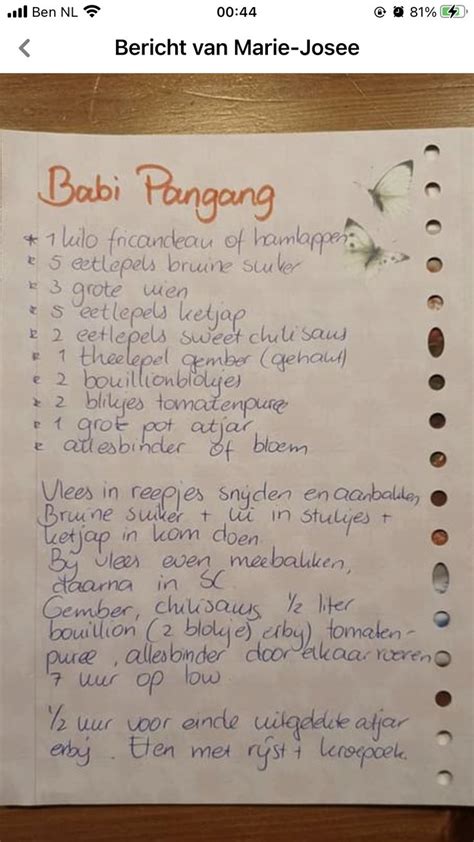 Ben NL 00:44 81%
Bericht van Marie-Josee
Babi Pangang
* 1 kilo fricandeau of hamlappen
* 5 eetlepels bruine suiker
* 3 grote uien
* 5 eetlepels ketjap
* 2 eetlepels sweet chilisaus
* 1 theelepel gember (gehakt)
* 2 bouillionblokjes
* 2 blikjes tomatenpuree
* 1 grot pot atjar
* allesbinder of bloem
Vlees in reepjes snijden en aanbakken,
Bruine suiker + ui in stukjes +
ketjap in kom doen.
By vlees even meebakken,
daarna in SC.
Gember, chilisaus, 1/2 liter
bouillion (2 blokjes erby) tomaten-
puree, allesbinder door elkaar roeren
7 uur op low.
1/2 uur voor einde uitgelekte atjar
erbij. Eten met rijst + kroepoek.